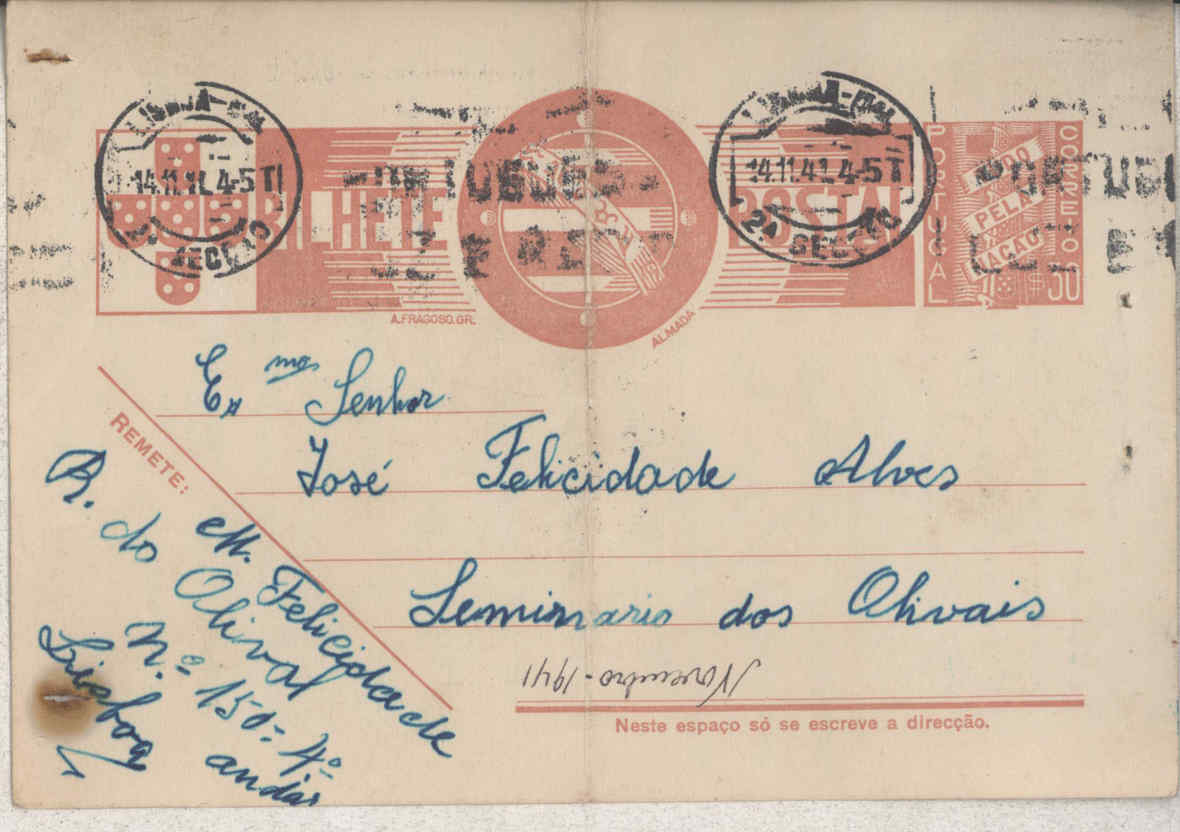 LISBOA
14.11.41. 4-5 T
2ª SECÇÃO
LISBOA
14.11.41. 4-5 T
2ª SECÇÃO
BILHETE POSTAL
PORTUGAL
CORREIO
TUDO
PELA
NAÇÃO
$50
A. FRAGOSO. GR.
ALMADA
Exmo Senhor
José Felicidade Alves
Seminario dos Olivais
Novembro - 1941
Neste espaço só se escreve a direcção.
REMETE:
M. Felicidade
R. do Olival
N.º 150 - 4º
andar
Lisboa